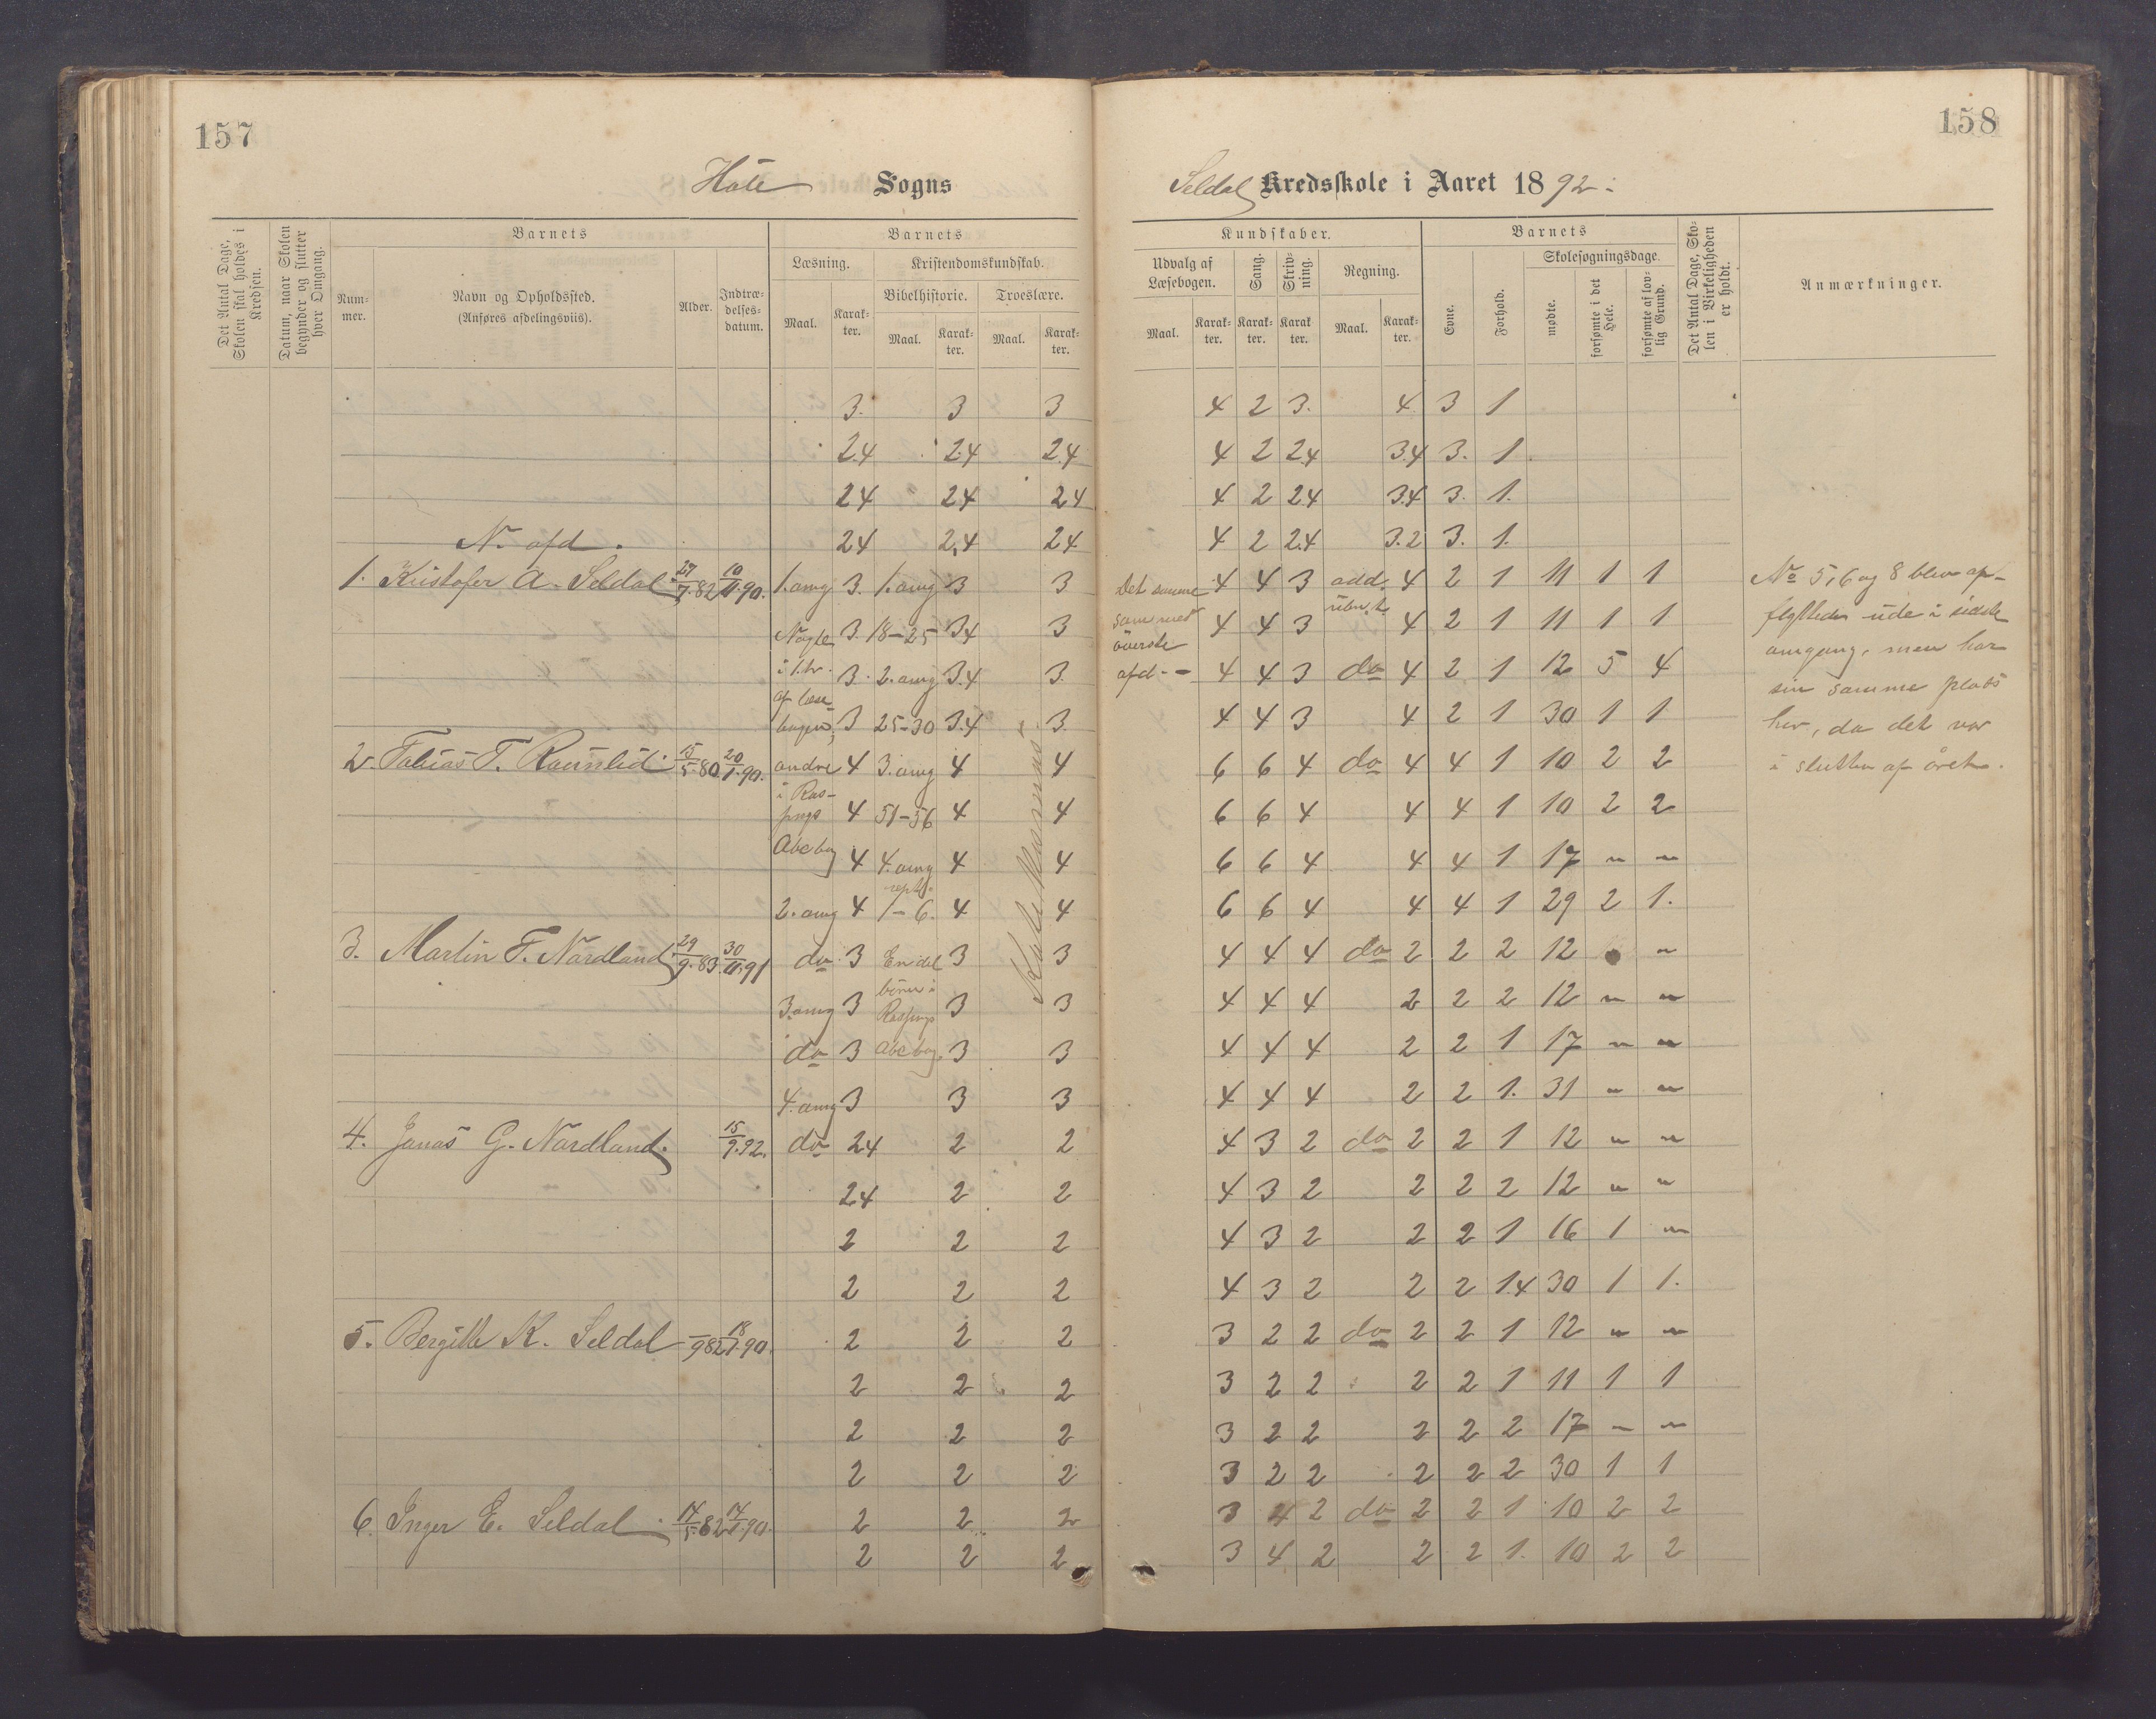 157
158
Sogns
Seldal Kredsskole i Aaret 1892.
Det Antal Dage, Skolen skal holdes i Kredsen.
Datum, naar Skolen begynder og slutter hver Omgang.
Barnets
Num-mer.
Navn og Opholdssted.
(Anføres afdelingsviis).
Alder.
Indtræ-delses-datum.
Barnets
Læsning.
Kristendomskundskab.
Bibelhistorie.
Troeslære.
Maal.
Karak-ter.
Maal.
Karak-ter.
Maal.
Karak-ter.
Kundskaber.
Udvalg af Læsebogen.
Sang.
Skriv-ning.
Regning.
Maal.
Karak-ter.
Karak-ter.
Karak-ter.
Maal.
Karak-ter.
Barnets
Evne.
Forhold.
Skolesøgningsdage.
mødte.
forsømte i det Hele.
forsømte af lov-lig Grund.
Det Antal Dage, Sko-len i Virkeligheden er holdt.
Anmærkninger.
3. 3 3 4 2 3. 4 3 1
2.4 2.4 2.4 4 2 2.4 3.4 3. 1
2.4 2.4 2.4 4 2 2.4 3.4 3. 1.
N. afd. 2.4 2.4 2.4 4 2 2.4 3.2 3. 1.
1. Kristofer A. Seldal 1. omg 3. 1. omg 3 3 Det samme 4 4 3 add. 4 2 1 11 1 1
Nogle 3. 18-25 3.4 3 som med 4 4 3 4 2 1 11 1 1
3. 2. omg 3.4 3. øverste afd. 4 4 3 do 4 2 1 12 5 4
3 25-30 3.4 3. 4 4 3 4 2 1 30 1 1
2. Tobias T. 15/5.80 andre 4 3. omg 4 4 6 6 4 do 4 4 1 10 2 2
i Ras-
4 51-56 4 4 6 6 4 4 4 1 10 2 2
Abcbog 4 4. omg 4 4 6 6 4 4 4 1 17 " "
2. omg 4 1-6. 4 4 6 6 4 4 4 1 29 2 1.
3. Martin T. Nordland 29/9.83 do 3 En del 3 3 4 4 4 do 2 2 2 12 "
3. omg 3 3 3 4 4 4 2 2 2 12 " "
do 3 Abcbog. 3 3 4 4 4 2 2 1 17 " "
4. omg 3 3 3 4 4 4 2 2 1. 31 " "
4. Jonas G. Nordland. 15/9.92. do 2.4 2 2 4 3 2 do 2 2 1 12 " "
2.4 2 2 4 3 2 2 2 2 12 " "
2 2 2 4 3 2 2 2 1 16 1 "
2 2 2 4 3 2 2 2 1.4 30 1 1.
5. Bergitte K. Seldal 2 2 2 3 2 2 do 2 2 1 12 " "
2 2 2 3 2 2 2 2 1 11 1 1
2 2 2 3 2 2 2 2 2 17 " "
2 2 2 3 2 2 2 2 2 30 1 1
6. Inger E. Seldal 2 2 2 3 4 2 do 2 2 1 10 2 2
2 2 2 3 4 2 2 2 1. 10 2 2
No 5, 6 og 8 blev op-
flyttede ude i sidste
omgang, men har
sin samme plads
her, da det var
i slutten af året.